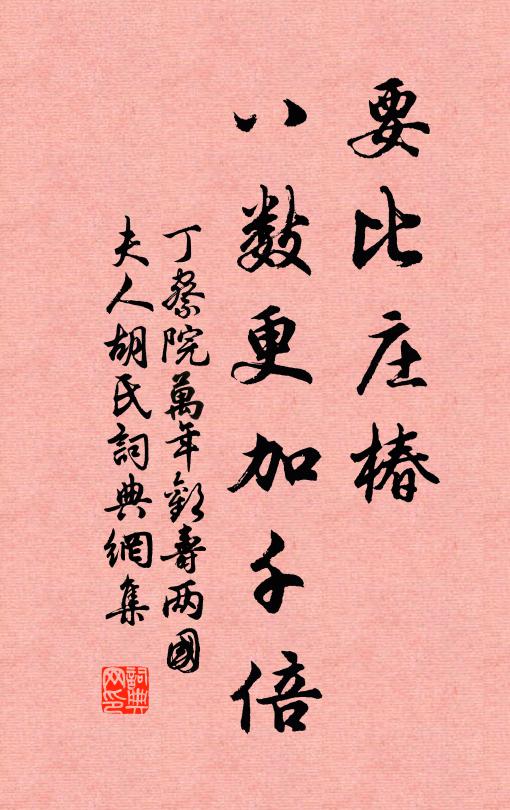 要比庄椿
八数更加千倍
丁察院萬年歡壽两國
夫人胡氏詞典網集
詞典网印